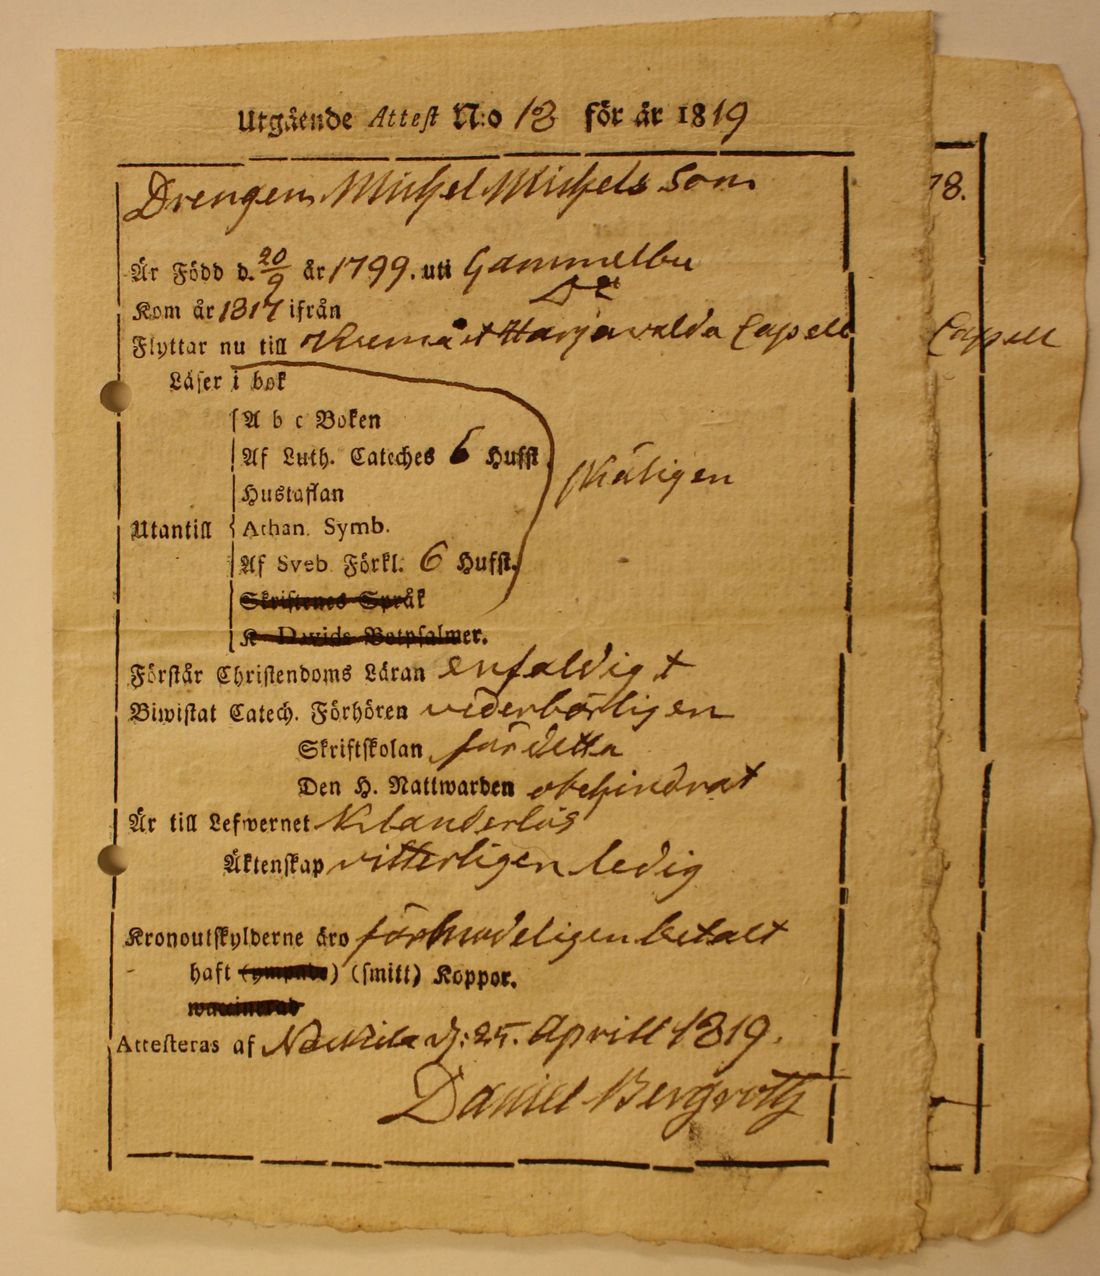 Utgående Attest N:o 18 för år 1819
Drengen Michel Michels Son
78.
Är Född d. 20/9 år 1799. uti Gammelbu
Kom år 1817 ifrån D:o
Flyttar nu till Harjavalda Capell
Capell
Läser i bok
A b c Boken
Af Luth. Cateches 6 Hufst.
skäligen
Hustaflan
Utantill
Athan. Symb.
Af Sveb. Förkl. 6 Hufst.
Skriftenes Språk
K Davids Botpsalmer.
Förstår Christendoms Läran enfaldigt
Biwistat Catech. Förhören vederbörligen
Skriftskolan för detta
Den H. Nattwarden obehindrat
Är till Lefwernet Klanderlös
Äktenskap vitterligen ledig
Kronoutskylderne äro förmodeligen betalt
haft (ympade) (smitt) Koppor.
waccinerad
Attesteras af Nackila d: 25. Aprill 1819.
Daniel Bergroth